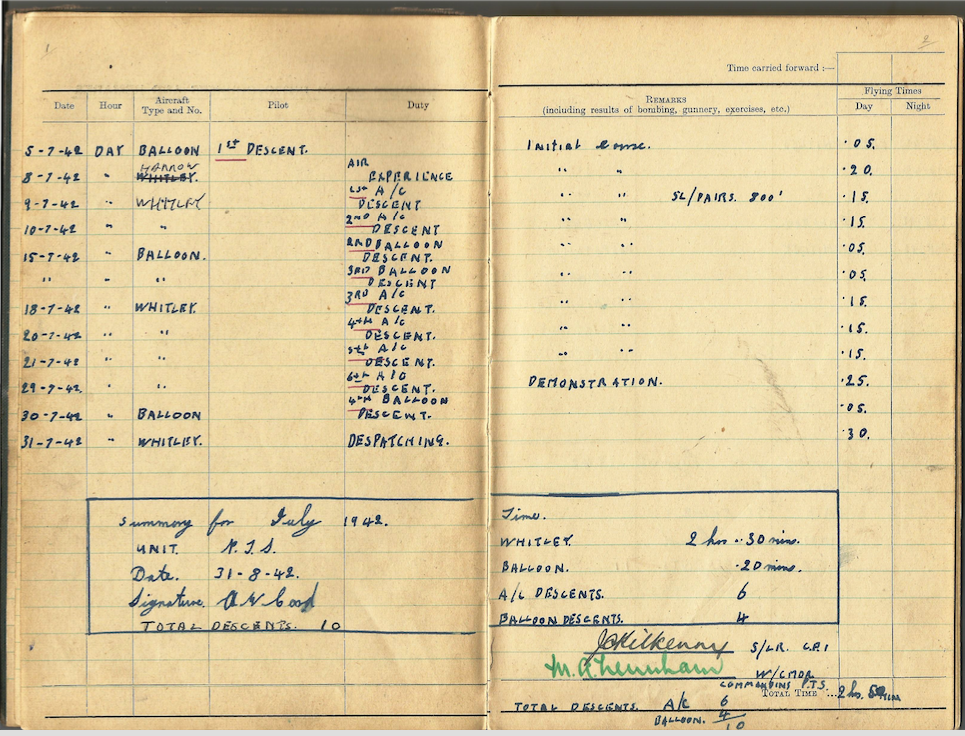 1
2
Time carried forward :—
Date Hour Aircraft Type and No. Pilot Duty
REMARKS (including results of bombing, gunnery, exercises, etc.) Flying Times Day Night
5-7-42 DAY BALLOON 1ST DESCENT. Initial Course. .05.
8-7-42 " HARROW WHITLEY. AIR EXPERIENCE " " .20.
9-7-42 " WHITLEY 1ST A/C DESCENT " " SL/PAIRS. 800' .15.
10-7-42 " " 2ND A/C DESCENT " " .15.
15-7-42 " BALLOON. 2ND BALLOON DESCENT. " " .05.
" " " 3RD BALLOON DESCENT " " .05.
18-7-42 " WHITLEY. 3RD A/C DESCENT. " " .15.
20-7-42 " " 4TH A/C DESCENT. " " .15.
21-7-42 " " 5TH A/C DESCENT. " " .15.
29-7-42. " " 6TH A/C DESCENT. DEMONSTRATION. .25.
30-7-42 " BALLOON 4TH BALLOON DESCENT. .05.
31-7-42 " WHITLEY. DESPATCHING. .30.
Summary for July 1942.
UNIT. P.T.S.
Date. 31-8-42.
Signature.
TOTAL DESCENTS. 10
Time.
WHITLEY. 2 hrs. 30 mins.
BALLOON. .20 mins.
A/C DESCENTS. 6
BALLOON DESCENTS. 4
JCKilkenny S/LR. C.F.I
W/CMDR
COMMANDING P.T.S.
TOTAL TIME ... 2 hs. 50 mins
TOTAL DESCENTS. A/C 6
BALLOON. 4
10